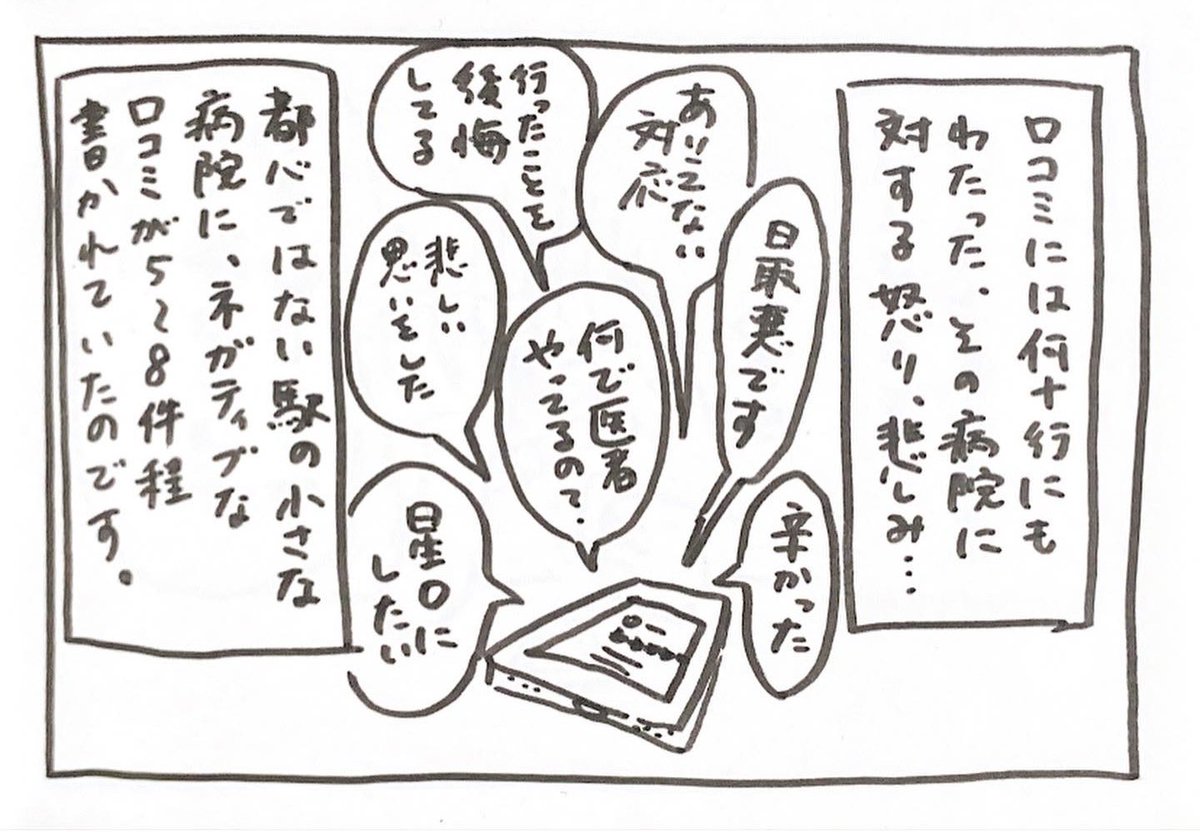 口コミには何十行にも
わたった、その病院に
対する怒り、悲しみ…
ありえない
対応
行ったことを
後悔
してる
最悪です
何で医者
やってるの?
悲しい
思いをした
辛かった
星0に
したい
都心ではない駅の小さな
病院に、ネガティブな
口コミが5〜8件程
書かれていたのです。